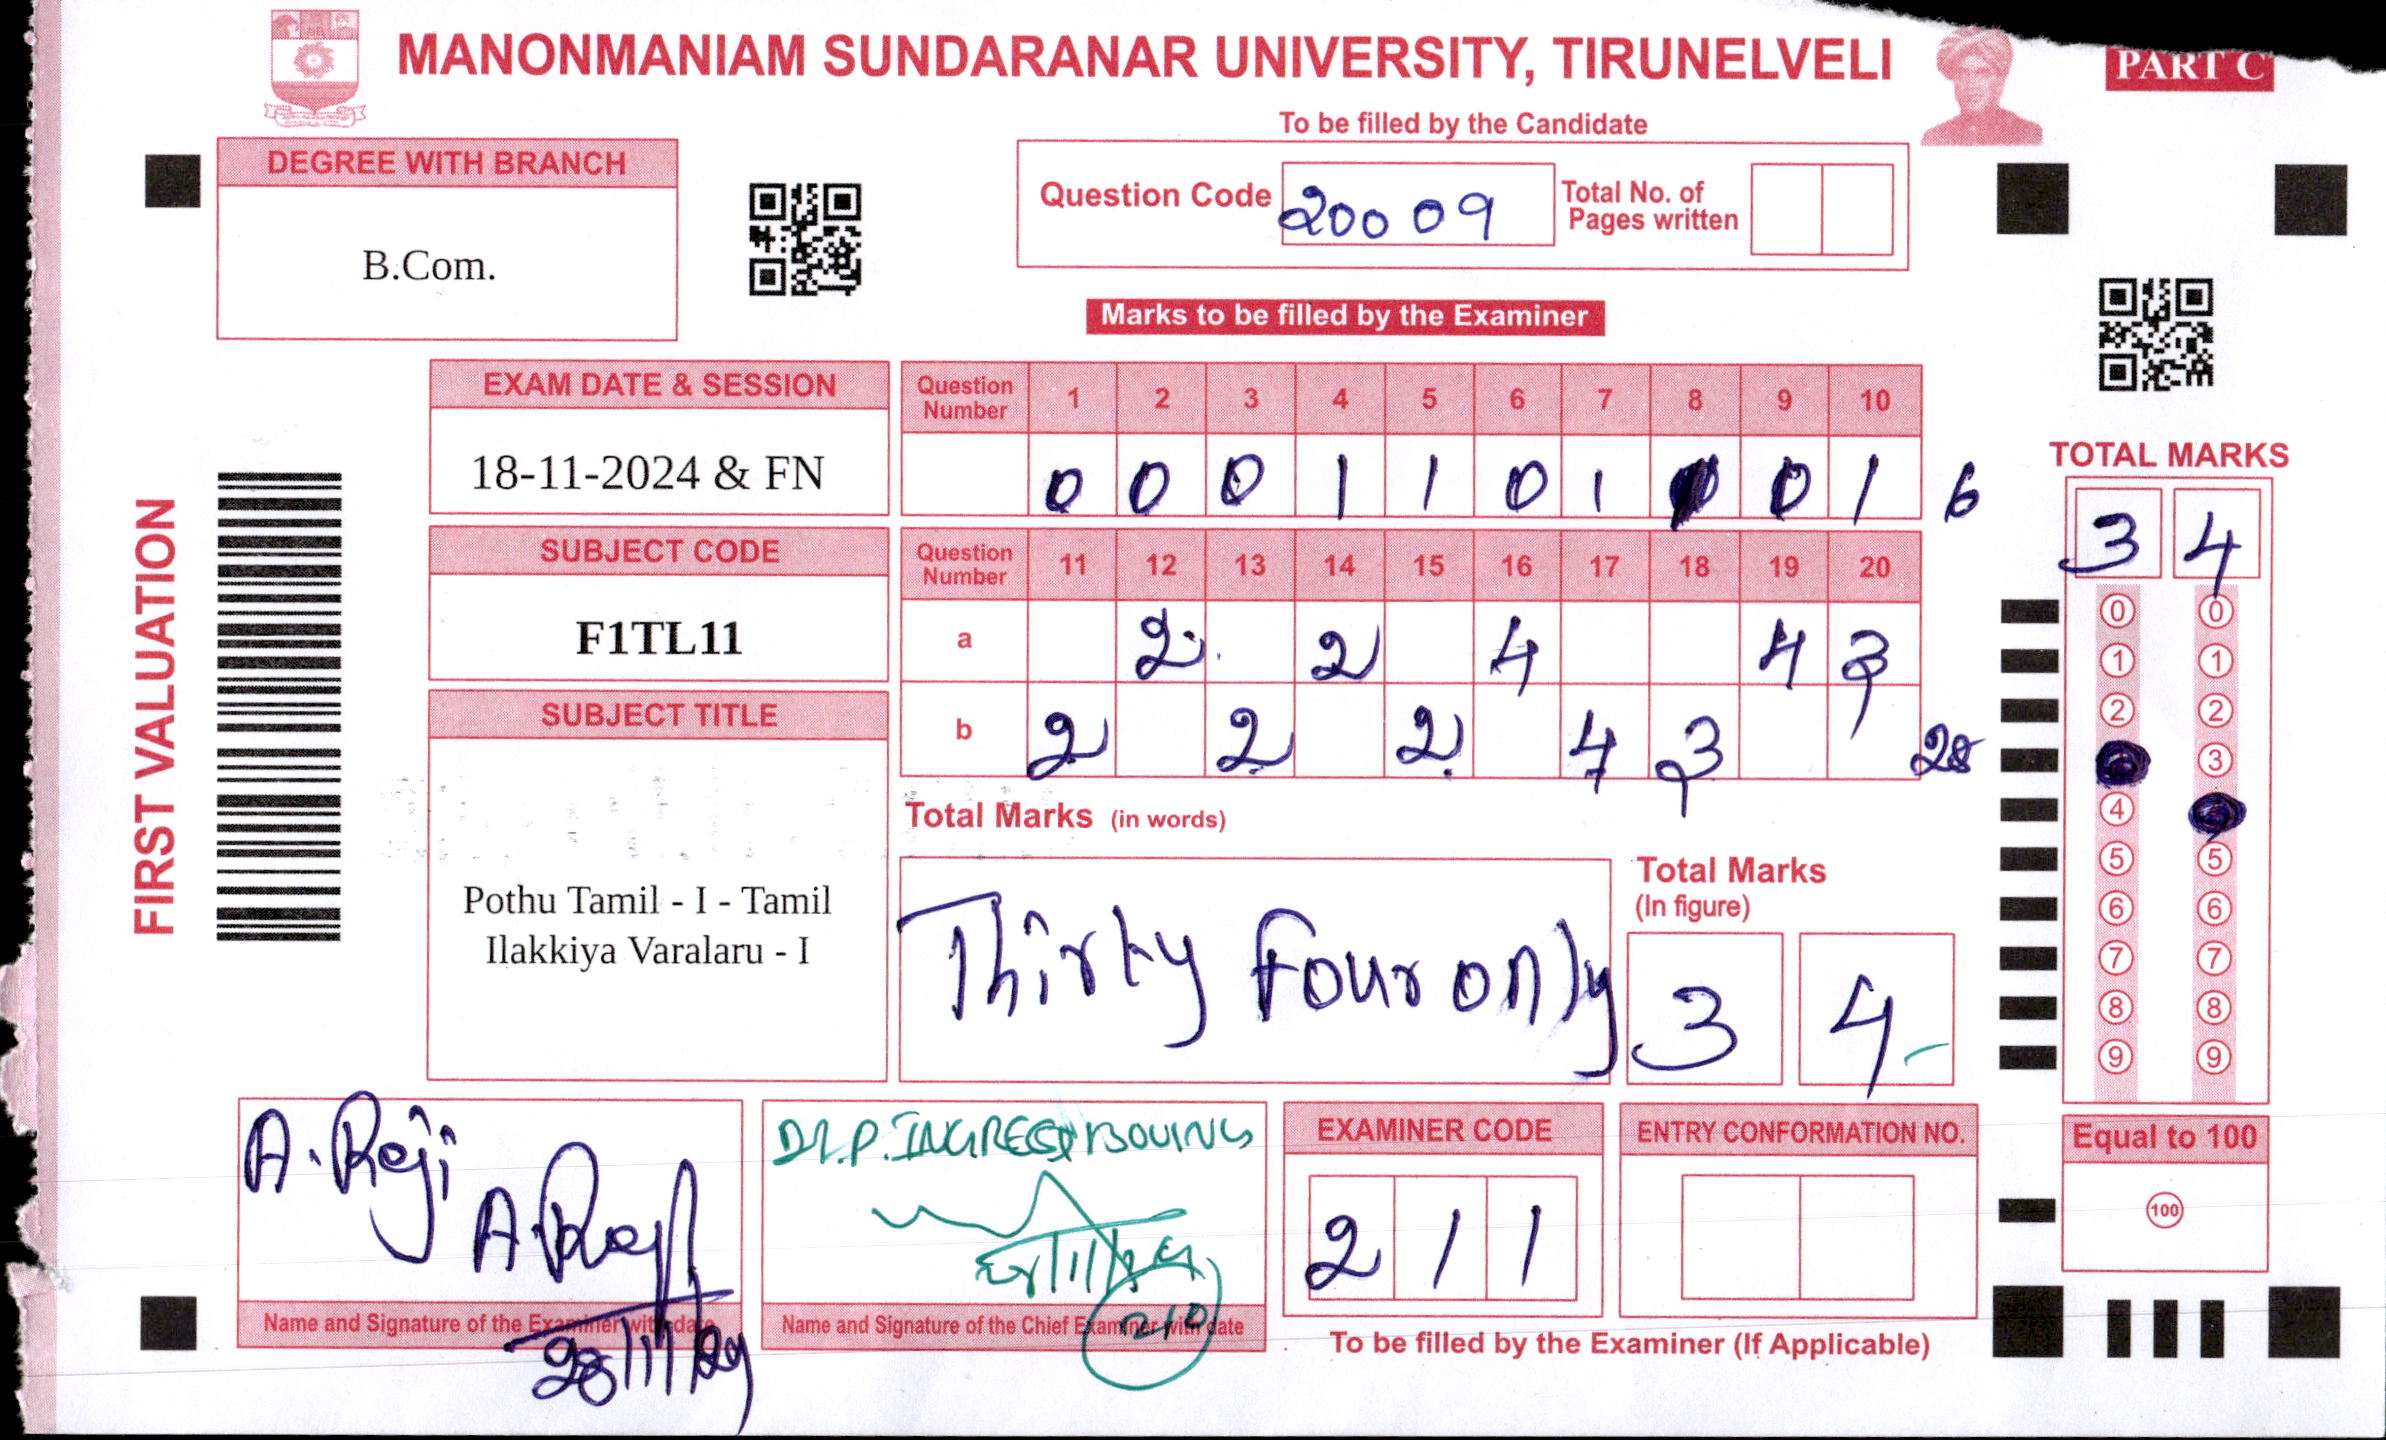 MANONMANIAM SUNDARANAR UNIVERSITY, TIRUNELVELI
PART C
To be filled by the Candidate
DEGREE WITH BRANCH
B.Com.
Question Code 20009
Total No. of
Pages written
Marks to be filled by the Examiner
FIRST VALUATION
EXAM DATE & SESSION
18-11-2024 & FN
SUBJECT CODE
F1TL11
SUBJECT TITLE
Pothu Tamil - I - Tamil
Ilakkiya Varalaru - I
Question Number 1 2 3 4 5 6 7 8 9 10
0 0 0 1 1 0 1 0 1 6
Question Number 11 12 13 14 15 16 17 18 19 20
a 2 2 4 4 3
b 2 2 2 4 3 28
Total Marks (in words)
Thirty Four only
Total Marks
(In figure)
3 4
TOTAL MARKS
3 4
0 0
1 1
2 2
3
4
5 5
6 6
7 7
8 8
9 9
Equal to 100
100
A. Reji
Name and Signature of the Examiner with date
28/11/24
Name and Signature of the Chief Examiner with date
EXAMINER CODE
2 1 1
ENTRY CONFORMATION NO.
To be filled by the Examiner (If Applicable)